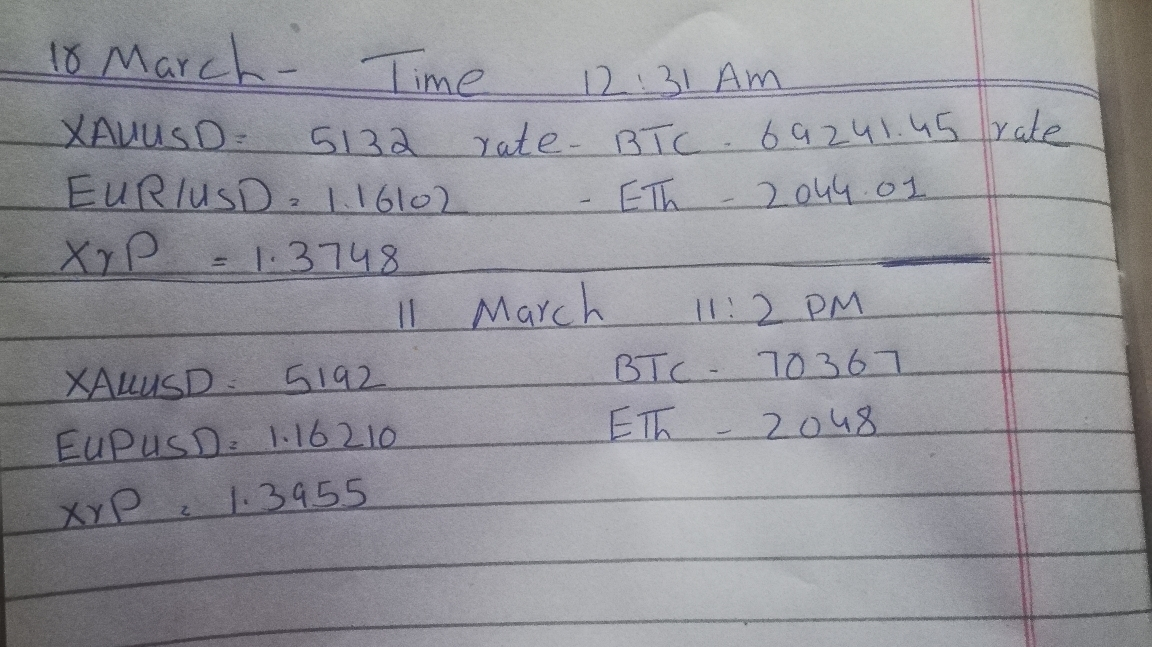 10 March - Time 12:31 Am
XAUUSD = 5132 rate - BTC - 69241.45 rate
EUR/USD = 1.16102 - ETh - 2044.01
XrP = 1.3748
11 March 11:2 PM
XAUUSD = 5192 BTC - 70367
EUPUSD = 1.16210 ETh - 2048
XrP = 1.3955